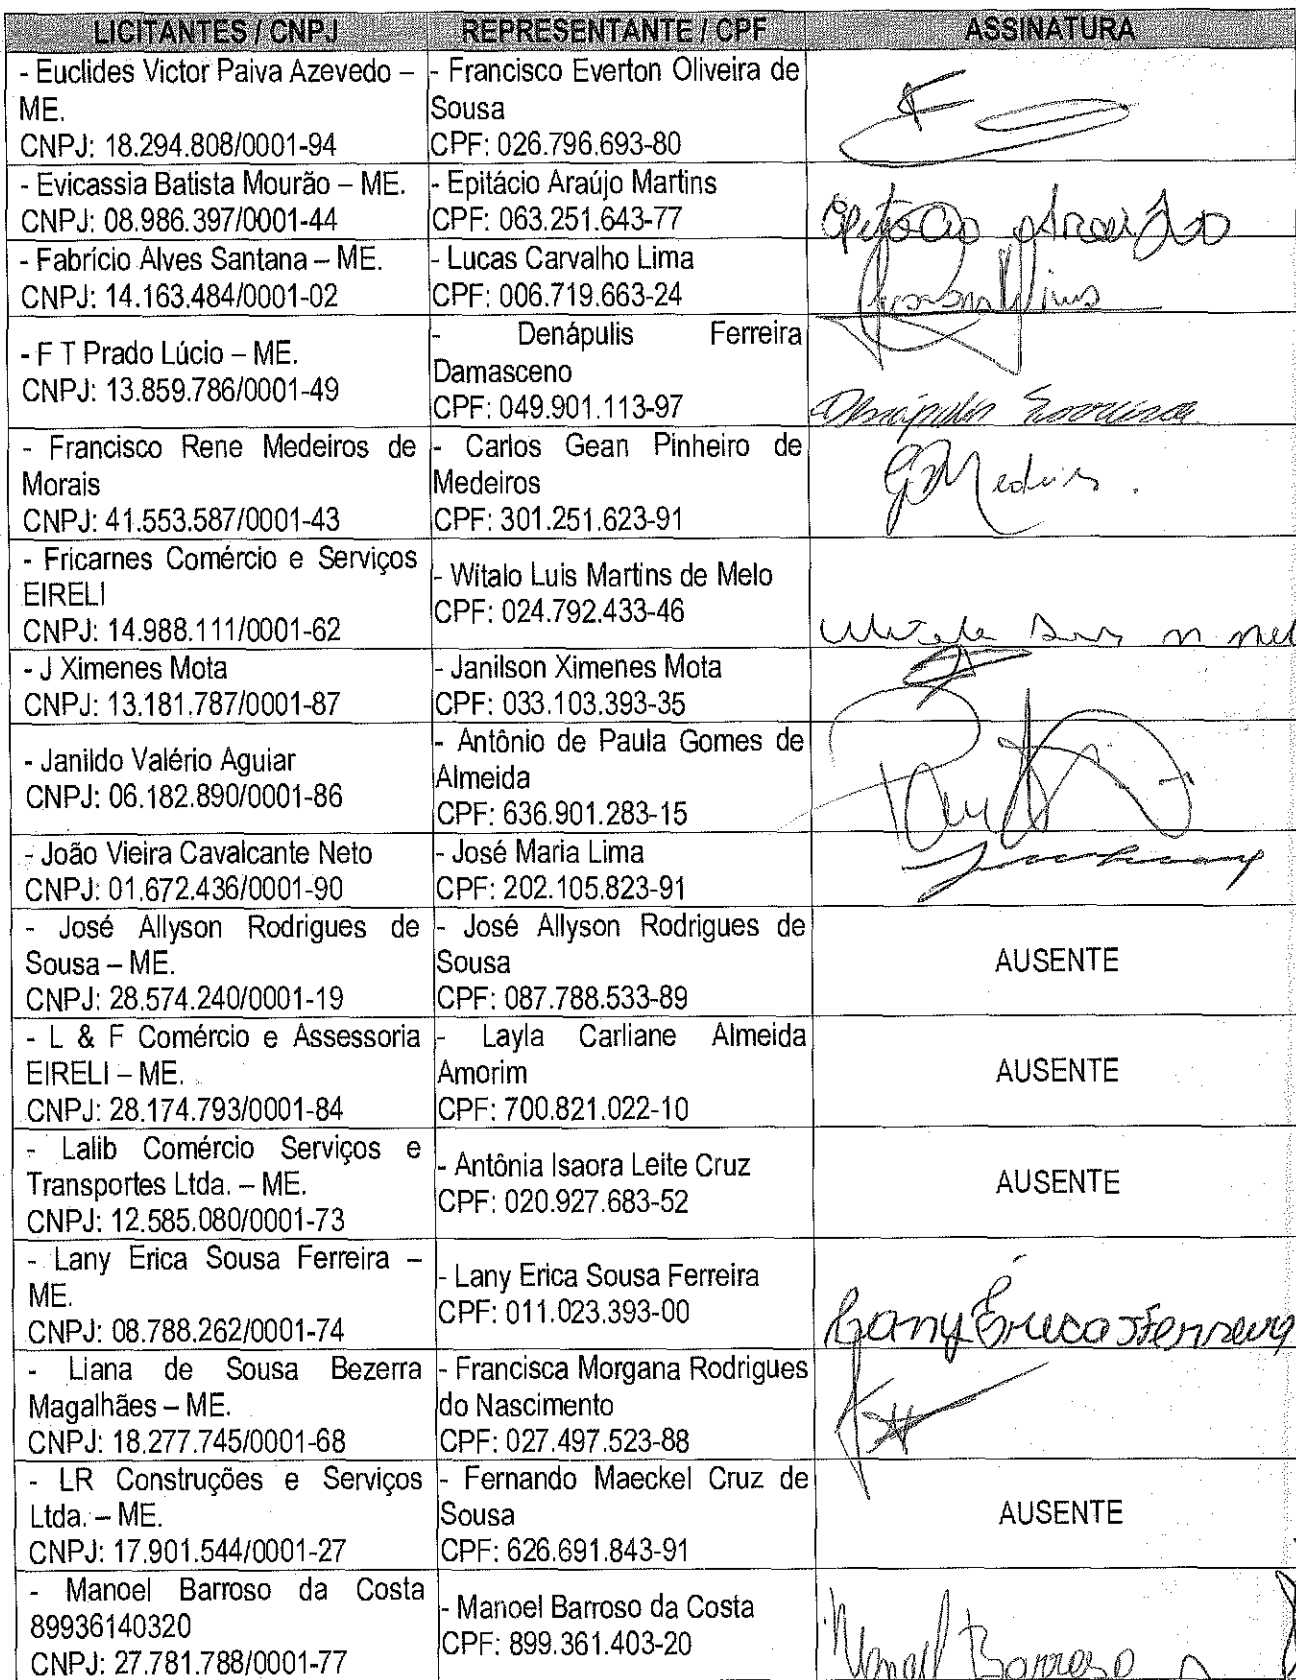 LICITANTES / CNPJ REPRESENTANTE / CPF ASSINATURA
- Euclides Victor Paiva Azevedo –
ME.
CNPJ: 18.294.808/0001-94
- Francisco Everton Oliveira de
Sousa
CPF: 026.796.693-80
- Evicassia Batista Mourão – ME.
CNPJ: 08.986.397/0001-44
- Epitácio Araújo Martins
CPF: 063.251.643-77
- Fabrício Alves Santana – ME.
CNPJ: 14.163.484/0001-02
- Lucas Carvalho Lima
CPF: 006.719.663-24
- F T Prado Lúcio – ME.
CNPJ: 13.859.786/0001-49
- Denápulis Ferreira
Damasceno
CPF: 049.901.113-97
- Francisco Rene Medeiros de
Morais
CNPJ: 41.553.587/0001-43
- Carlos Gean Pinheiro de
Medeiros
CPF: 301.251.623-91
- Fricarnes Comércio e Serviços
EIRELI
CNPJ: 14.988.111/0001-62
- Witalo Luis Martins de Melo
CPF: 024.792.433-46
- J Ximenes Mota
CNPJ: 13.181.787/0001-87
- Janilson Ximenes Mota
CPF: 033.103.393-35
- Janildo Valério Aguiar
CNPJ: 06.182.890/0001-86
- Antônio de Paula Gomes de
Almeida
CPF: 636.901.283-15
- João Vieira Cavalcante Neto
CNPJ: 01.672.436/0001-90
- José Maria Lima
CPF: 202.105.823-91
- José Allyson Rodrigues de
Sousa – ME.
CNPJ: 28.574.240/0001-19
- José Allyson Rodrigues de
Sousa
CPF: 087.788.533-89
AUSENTE
- L & F Comércio e Assessoria
EIRELI – ME.
CNPJ: 28.174.793/0001-84
- Layla Carliane Almeida
Amorim
CPF: 700.821.022-10
AUSENTE
- Lalib Comércio Serviços e
Transportes Ltda. – ME.
CNPJ: 12.585.080/0001-73
- Antônia Isaora Leite Cruz
CPF: 020.927.683-52
AUSENTE
- Lany Erica Sousa Ferreira –
ME.
CNPJ: 08.788.262/0001-74
- Lany Erica Sousa Ferreira
CPF: 011.023.393-00
Lany Érica SFerreira
- Liana de Sousa Bezerra
Magalhães – ME.
CNPJ: 18.277.745/0001-68
- Francisca Morgana Rodrigues
do Nascimento
CPF: 027.497.523-88
- LR Construções e Serviços
Ltda. – ME.
CNPJ: 17.901.544/0001-27
- Fernando Maeckel Cruz de
Sousa
CPF: 626.691.843-91
AUSENTE
- Manoel Barroso da Costa
89936140320
CNPJ: 27.781.788/0001-77
- Manoel Barroso da Costa
CPF: 899.361.403-20
Manoel Barroso